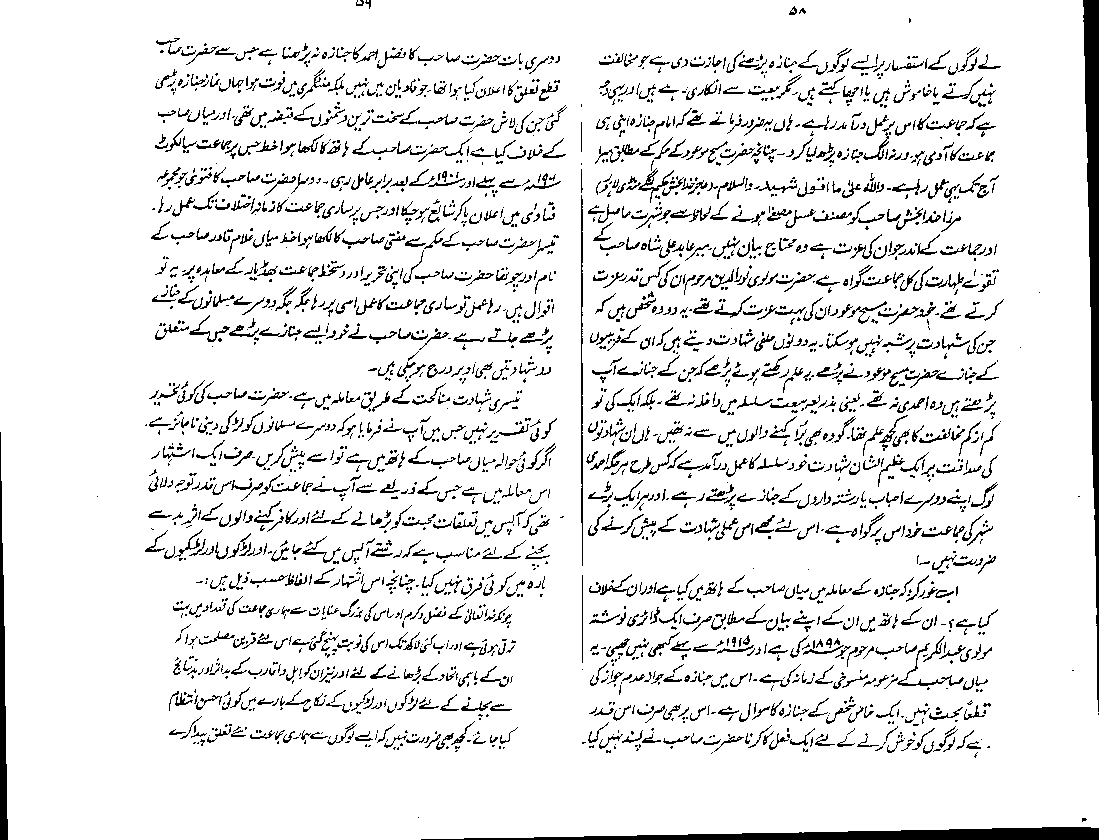 ۵۸
نے لوگوں کے استفسار پر ایسے لوگوں کے جنازہ پڑھنے کی اجازت دی ہے جو مخالفت
نہیں کرتے یا خاموش ہیں یا اچھا کہتے ہیں۔ مگر بیعت سے انکاری۔ ہے ہیں اور یہی وجہ
ہے کہ جماعت کا اس پر عمل درآمد رہا ہے۔ ہاں یہ ضرور فرماتے تھے کہ امام جنازہ اپنی ہی
جماعت کا آدمی ہو۔ ورنہ الگ جنازہ پڑھ لیا کرو۔ چنانچہ حضرت مسیح موعود کے حکم کے مطابق میرا
آج تک یہی عمل رہا ہے۔ واللہ علیٰ ما اقول شہید۔ والسلام۔
مرزا خدا بخش صاحب کو مصنف عسل مصفیٰ ہونے کے لحاظ سے جو شہرت حاصل ہے
اور جماعت کے اندر جو ان کی عزت ہے وہ محتاج بیان نہیں۔ میر عابد علی شاہ صاحب کے
تقویٰ طہارت کی کل جماعت گواہ ہے۔ حضرت مولوی نور الدین مرحوم ان کی کس قدر عزت
کرتے تھے۔ خود حضرت مسیح موعود ان کی بہت عزت کرتے تھے۔ یہ دو وہ شخص ہیں کہ
جن کی شہادت پر شبہ نہیں ہو سکتا۔ یہ دونوں حلفی شہادت دیتے ہیں کہ ان کے قریبیوں
کے جنازے حضرت مسیح موعود نے پڑھے۔ یہ علم رکھتے ہوئے پڑھے کہ جن کے جنازے آپ
پڑھتے ہیں وہ احمدی نہ تھے۔ یعنی بذریعہ بیعت سلسلہ میں داخل نہ تھے۔ بلکہ ایک کی تو
کم از کم مخالفت کا بھی کچھ علم تھا۔ گو وہ بھی برا کہنے والوں میں سے نہ تھیں۔ ہاں ان شہادتوں
کی صداقت پر ایک عظیم الشان شہادت خود سلسلہ کا عمل درآمد ہے کہ کس طرح ہر جگہ احمدی
لوگ اپنے دوسرے احباب یا رشتہ داروں کے جنازے پڑھتے رہے۔ اور ہر ایک بڑے
شہر کی جماعت خود اس پر گواہ ہے۔ اس لئے مجھے اس عملی شہادت کے پیش کرنے کی
ضرورت نہیں۔
اب غور کرو کہ جنازہ کے معاملہ میں میاں صاحب کے ہاتھ میں کیا ہے اور ان کے خلاف
کیا ہے؟ ان کے ہاتھ میں ان کے اپنے بیان کے مطابق صرف ایک ڈائری نوشتہ
مولوی عبد الکریم صاحب مرحوم جو ۱۸۹۸ء کی ہے اور ۱۹۱۵ء سے پہلے کبھی نہیں چھپی۔ یہ
میاں صاحب کے مزعومہ منسوخی کے زمانہ کی ہے۔ اس میں جنازہ کے جواز عدم جواز کی
قطعاً بحث نہیں۔ ایک خاص شخص کے جنازہ کا سوال ہے۔ اس پر بھی صرف اس قدر
ہے کہ لوگوں کو خوش کرنے کے لئے ایک فعل کا کرنا حضرت صاحب نے پسند نہیں کیا۔
۵۹
دوسری بات حضرت صاحب کا فضل احمد کا جنازہ نہ پڑھنا ہے جس سے حضرت صاحب
قطع تعلق کا اعلان کیا ہوا تھا۔ جو قادیان میں نہیں بلکہ منٹگمری میں فوت ہوا جہاں نماز جنازہ پڑھی
گئی جن کی لاش حضرت صاحب کے سخت ترین دشمنوں کے قبضہ میں تھی۔ اور میاں صاحب
کے خلاف کیا ہے ایک حضرت صاحب کے ہاتھ کا لکھا ہوا خط جس پر جماعت سیالکوٹ
۱۹۰۱ء سے پہلے اور ۱۹۰۱ء کے بعد برابر عامل رہی۔ دوسرا حضرت صاحب کا فتویٰ جو مجموعہ
فتاویٰ میں اعلان پا کر شایع ہو چکا اور جس پر ساری جماعت کا زمانہ اختلاف تک عمل رہا۔
تیسرا حضرت صاحب کے حکم سے مفتی صاحب کا لکھا ہوا خط میاں غلام قادر صاحب کے
نام اور چوتھا حضرت صاحب کی اپنی تحریر اور دستخط جماعت بھڈیار کے معاہدہ پر۔ یہ تو
اقوال ہیں۔ رہا عمل تو ساری جماعت کا عمل اسی پر رہا جگہ جگہ دوسرے مسلمانوں کے جنازے
پڑھے جاتے رہے۔ حضرت صاحب نے خود ایسے جنازے پڑھے جس کے متعلق
دو شہادتیں بھی اوپر درج ہو چکی ہیں۔
تیسری شہادت مناکحت کے طریق معاملہ میں ہے۔ حضرت صاحب کی کوئی تحریر
کوئی تقریر نہیں جس میں آپ نے فرمایا ہو کہ دوسرے مسلمانوں کو لڑکی دینی ناجائز ہے۔
اگر کوئی حوالہ میاں صاحب کے ہاتھ میں ہے تو اسے پیش کریں۔ صرف ایک اشتہار
اس معاملہ میں ہے جس کے ذریعے سے آپ نے جماعت کو صرف اس قدر توجہ دلائی
تھی کہ آپس میں تعلقات محبت کو بڑھانے کے لئے اور کافر کہنے والوں کے اثر بد سے
بچنے کے لئے مناسب ہے کہ رشتے آپس میں کئے جائیں۔ اور لڑکوں اور لڑکیوں کے
بارہ میں کوئی فرق نہیں کیا۔ چنانچہ اس اشتہار کے الفاظ حسب ذیل ہیں:۔
چونکہ خدا تعالیٰ کے فضل و کرم اور اس کی بزرگ عنایات سے ہماری جماعت کی تعداد میں بہت
ترقی ہوئی ہے اور اب کئی لاکھ تک اس کی نوبت پہنچ گئی ہے اس لئے قرین مصلحت ہوا کہ
ان کے باہمی اتحاد کے بڑھانے کے لئے اور نیز ان کو اہل و اقارب کے بد اثر اور بد نتایج
سے بچانے کے لئے لڑکوں اور لڑکیوں کے نکاح کے بارے میں کوئی احسن انتظام
کیا جائے۔ کچھ بھی ضرورت نہیں کہ ایسے لوگوں سے ہماری جماعت نئے تعلق پیدا کرے